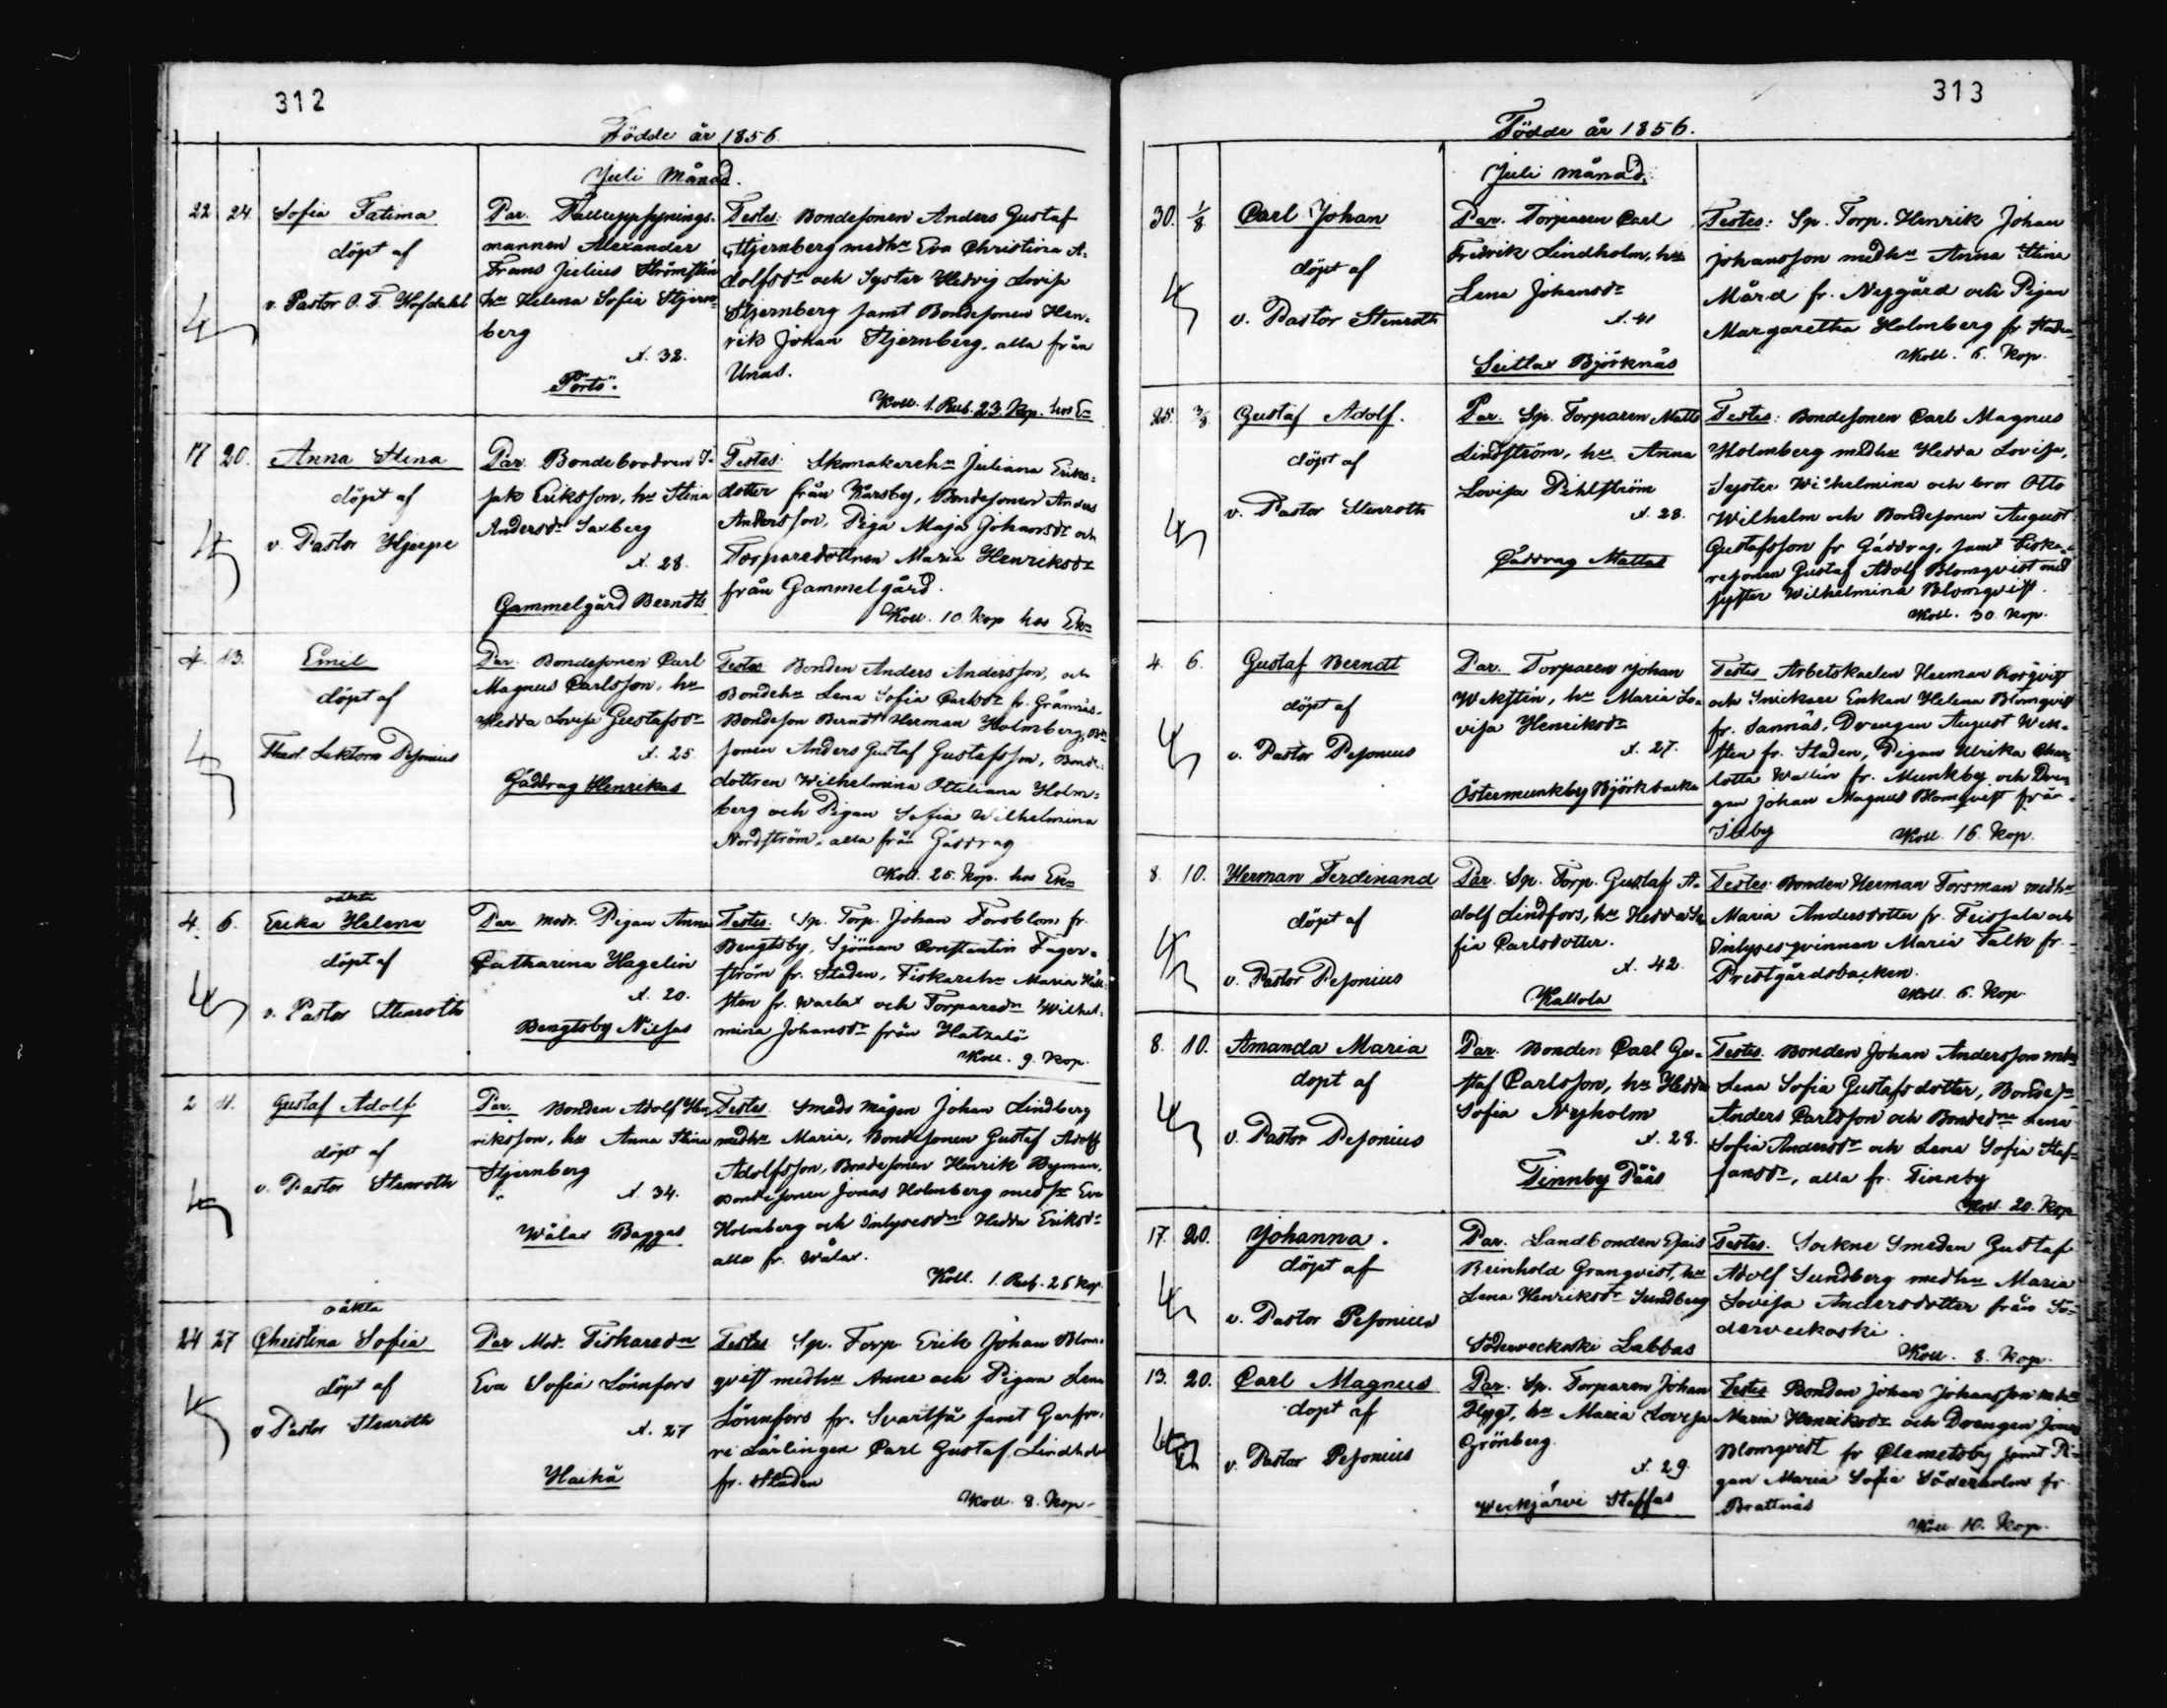 312
Födde år 1856.
Juli Månad.
22 24. Sofia Fatima
döpt af
v. Pastor O. F. Hofdahl
Par. Talluppsynings-
mannen Alexander
Frans Julius Strömsten
hu Helena Sofia Stjern-
berg
A. 32.
"Torts".
Testes: Bondesonen Anders Gustaf
Stjernberg medhu Eva Christina A-
dolfsdr och Syster Hedvig Lovisa
Stjernberg samt Bondesonen Hen-
rik Johan Stjernberg, alla från
Unas.
Koll. 1. Rub. 23. Kop. hos En
17 20. Anna Stina
döpt af
v. Pastor Hjerpe
Par. Bondebrodren I-
sak Eriksson, hu Stina
Andersdr Saxberg
A. 28.
Gammelgård Berndts
Testes: Skomakarehu Juliana Eriks-
dotter från Kårsby, Bondesonen Anders
Andersson, Piga Maja Johansdr och
Torparedottren Maria Henriksdr
från Gammelgård.
Koll. 10. Kop hos Ekn
4. 13. Emil
döpt af
Past. Sektorn Pesonius
Par. Bondesonen Carl
Magnus Carlsson, hu
Hedda Lovisa Gustafsdr
A. 25.
Gäddrag Henrikas
Testes Bonden Anders Andersson, och
Bondehu Lena Sofia Carlsdr fr. Grännäs.
Bondeson Berndt Herman Holmberg,
sonen Anders Gustaf Gustafsson, Bonde-
dottren Wilhelmina Ottiliana Holm-
berg och Pigan Sofia Wilhelmina
Nordström, alla från Gäddrag
Koll. 25. Kop. hos Ekn
oäkta
4. 6. Erika Helena
döpt af
v. Pastor Stenroth
Par modr. Pigan Anna
Catharina Hagelin
A. 20.
Bengtsby Nissas
Testes. Sp. Torp. Johan Forsblom fr.
Bengtsby, Sjöman Constantin Fager-
ström fr. Staden, Fiskarehu Maria
sten fr. Warlax och Torparedn Wilhel-
mina Johansdr från Hatxalö
Koll. 9. Kop.
2 11. Gustaf Adolf
döpt af
v. Pastor Stenroth
Par. Bonden Adolf Hen-
riksson, hu Anna Stina
Stjernberg
A. 34.
Wålax Baggas
Testes. Smeds mågen Johan Lindberg
medhu Maria, Bondesonen Gustaf Adolf
Adolfsson, Bondesonen Henrik Byman,
Bondesonen Jonas Holmberg med sr Eva
Holmberg och Inhysesdn Hedda Eriksdr
alla fr. Wålax.
Koll. 1. Rub. 26 Kop.
oäkta
24 27 Christina Sofia
döpt af
v Pastor Stenroth
Par Mod. Fiskaredn
Eva Sofia Lönnfors
A. 27
Haikå
Testes Sp. Torp Erik Johan Blom-
qvist medhu Anna och Pigan Lena
Lönnfors fr. Svartså samt Garfve-
re Lärlingen Carl Gustaf Lindholm
fr. Staden
Koll. 8. Kop.
313
Födde år 1856.
Juli månad.
30. 1/8 Carl Johan
döpt af
v. Pastor Stenroth
Par. Torparen Carl
Fredrik Lindholm, hu
Lena Johansdr
A. 41
Seitlax Björknäs
Testes: Sp. Torp. Henrik Johan
Johansson medhu Anna Stina
Mård fr. Nygård och Pigan
Margaretha Holmberg fr Staden
Koll. 6. Kop.
25. 3/8 Gustaf Adolf.
döpt af
v. Pastor Stenroth
Par. Sp. Torparen Matts
Lindström, hu Anna
Lovisa Pihlström
A. 28.
Gäddrag Mattas
Testes: Bondesonen Carl Magnus
Holmberg medhu Hedda Lovisa,
Syster Wilhelmina och bror Otto
Wilhelm och Bondesonen August
Gustafsson fr Gäddrag, samt Fiska-
resonen Gustaf Adolf Blomqvist med
syster Wilhelmina Blomqvist.
Koll. 30. Kop.
4. 6. Gustaf Berndt
döpt af
v. Pastor Pesonius
Par. Torparen Johan
Weksten, hu Maria Lo-
visa Henriksdr
A. 27.
Östermunkby Björkbacka
Testes Arbetskarlen Herman Rosqvist
och Snickare Enkan Helena Blomqvist
fr. Sannäs, Drengen August Wek-
sten fr. Staden, Pigan Ulrika Char-
lotta Wallin fr. Munkby och Dren-
gen Johan Magnus Blomqvist från
Isby Koll. 16. Kop.
8. 10. Herman Ferdinand
döpt af
v. Pastor Pesonius
Par. Sp. Torp. Gustaf A-
dolf Lindfors, hu Hedda So-
fia Carlsdotter.
A. 42.
Kallola
Testes: Bonden Herman Forsman medhu
Maria Andersdotter fr. Teissala och
Inhysesqvinnan Maria Falk fr.
Prestgårdsbacken.
Koll. 6. Kop
8. 10. Amanda Maria
döpt af
v. Pastor Pesonius
Par. Bonden Carl Gu-
staf Carlsson, hu Hedda
Sofia Nyholm
A. 28.
Tinnby Pääs
Testes. Bonden Johan Andersson mhu
Lena Sofia Gustafsdotter, Bondesn
Anders Carlsson och Bondedna Lena
Sofia Andersdr och Lena Sofia Staf-
fansdr, alla fr. Tinnby
Koll. 20. Kop
17. 20. Johanna.
döpt af
v. Pastor Pesonius
Par. Landbonden Esais
Reinhold Granqvist, hu
Lena Henriksdr Sundberg
Söderveckoski Labbas
Testes. Sockne Smeden Gustaf
Adolf Sundberg medhu Maria
Lovisa Andersdotter från Sö-
derveckoski
Koll. 8. Kop.
13. 20. Carl Magnus
döpt af
v. Pastor Pesonius
Par. Sp. Torparen Johan
Flygt, hu Maria Lovisa
Grönberg.
A. 29.
Weckjärvi Staffas
Testes Bonden Johan Johansson mhu
Maria Henriksdr och Drengen Jonas
Blomqvist fr Clemetsby samt Pi-
gan Maria Sofia Söderholm fr
Brattnäs
Koll. 10. Kop.